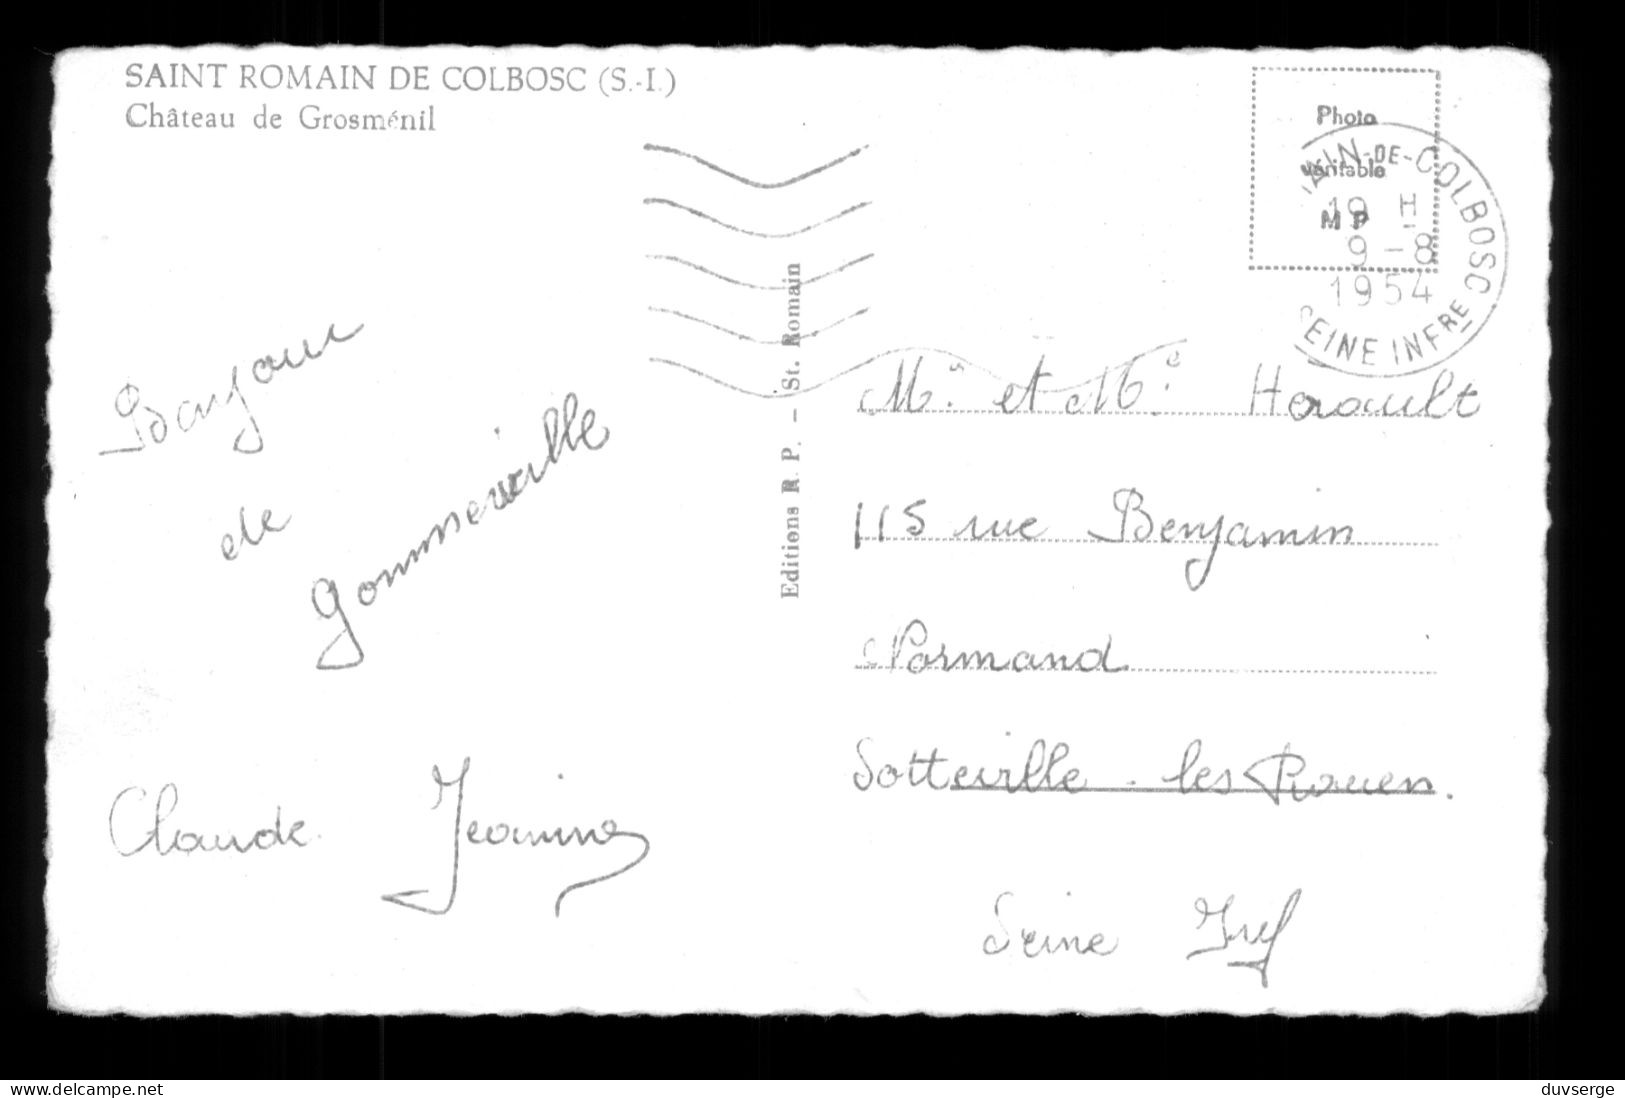 SAINT ROMAIN DE COLBOSC (S.-I.)
Château de Grosménil
Photo
véritable
M P
AIN-DE-COLBOSC
19 H
9-8
1954
SEINE INFRE
Bonjour
de
Gommerville
Claude Jeanine
Editions R. P. – St. Romain
Mr. et Me. Herault
115 rue Benjamin
Normand
Sotteville - les Rouen.
Seine Inf
www.delcampe.net
duvserge